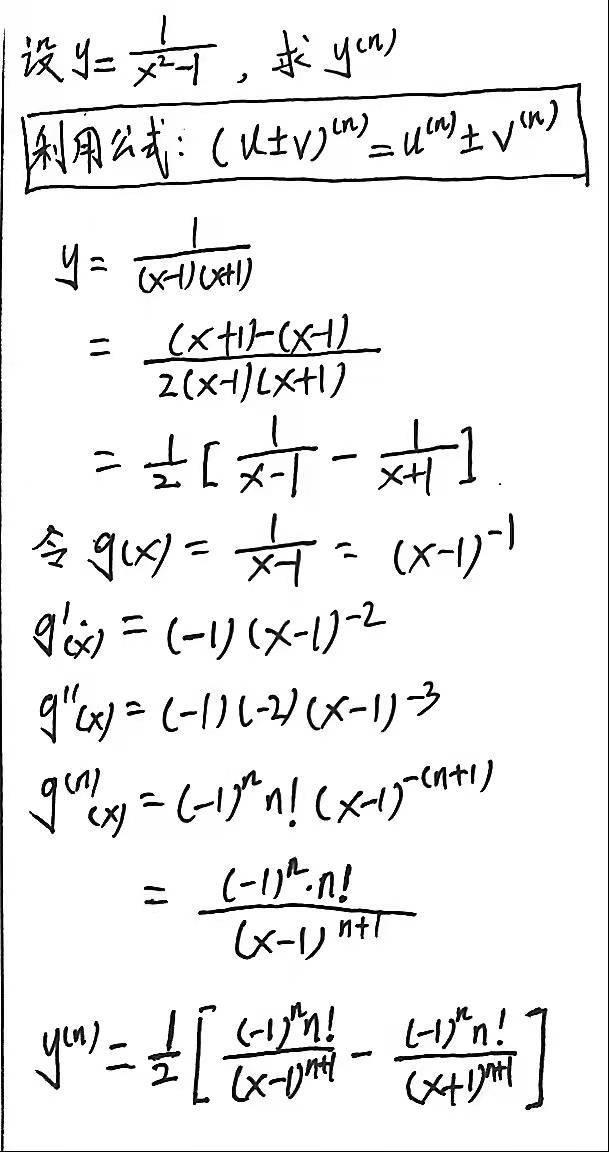 设 y = 1/(x²-1) , 求 y⁽ⁿ⁾
利用公式: (u±v)⁽ⁿ⁾ = u⁽ⁿ⁾ ± v⁽ⁿ⁾
y = 1/((x-1)(x+1))
= ((x+1)-(x-1))/(2(x-1)(x+1))
= 1/2 [ 1/(x-1) - 1/(x+1) ]
令 g(x) = 1/(x-1) = (x-1)⁻¹
g'(x) = (-1)(x-1)⁻²
g''(x) = (-1)(-2)(x-1)⁻³
g⁽ⁿ⁾(x) = (-1)ⁿ n! (x-1)⁻⁽ⁿ⁺¹⁾
= ((-1)ⁿ·n!)/((x-1)ⁿ⁺¹)
y⁽ⁿ⁾ = 1/2 [ ((-1)ⁿ n!)/((x-1)ⁿ⁺¹) - ((-1)ⁿ n!)/((x+1)ⁿ⁺¹) ]